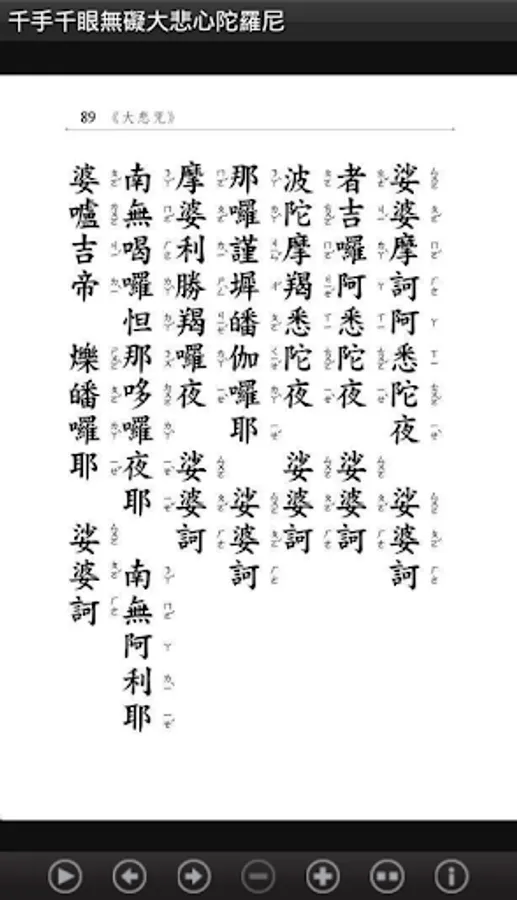 千手千眼無礙大悲心陀羅尼
89 《大悲咒》
娑婆摩訶阿悉陀夜 娑婆訶
者吉囉阿悉陀夜 娑婆訶
波陀摩羯悉陀夜 娑婆訶
那囉謹墀皤伽囉耶 娑婆訶
摩婆利勝羯囉夜 娑婆訶
南無喝囉怛那哆囉夜耶 南無阿利耶
婆嚧吉帝 爍皤囉耶 娑婆訶